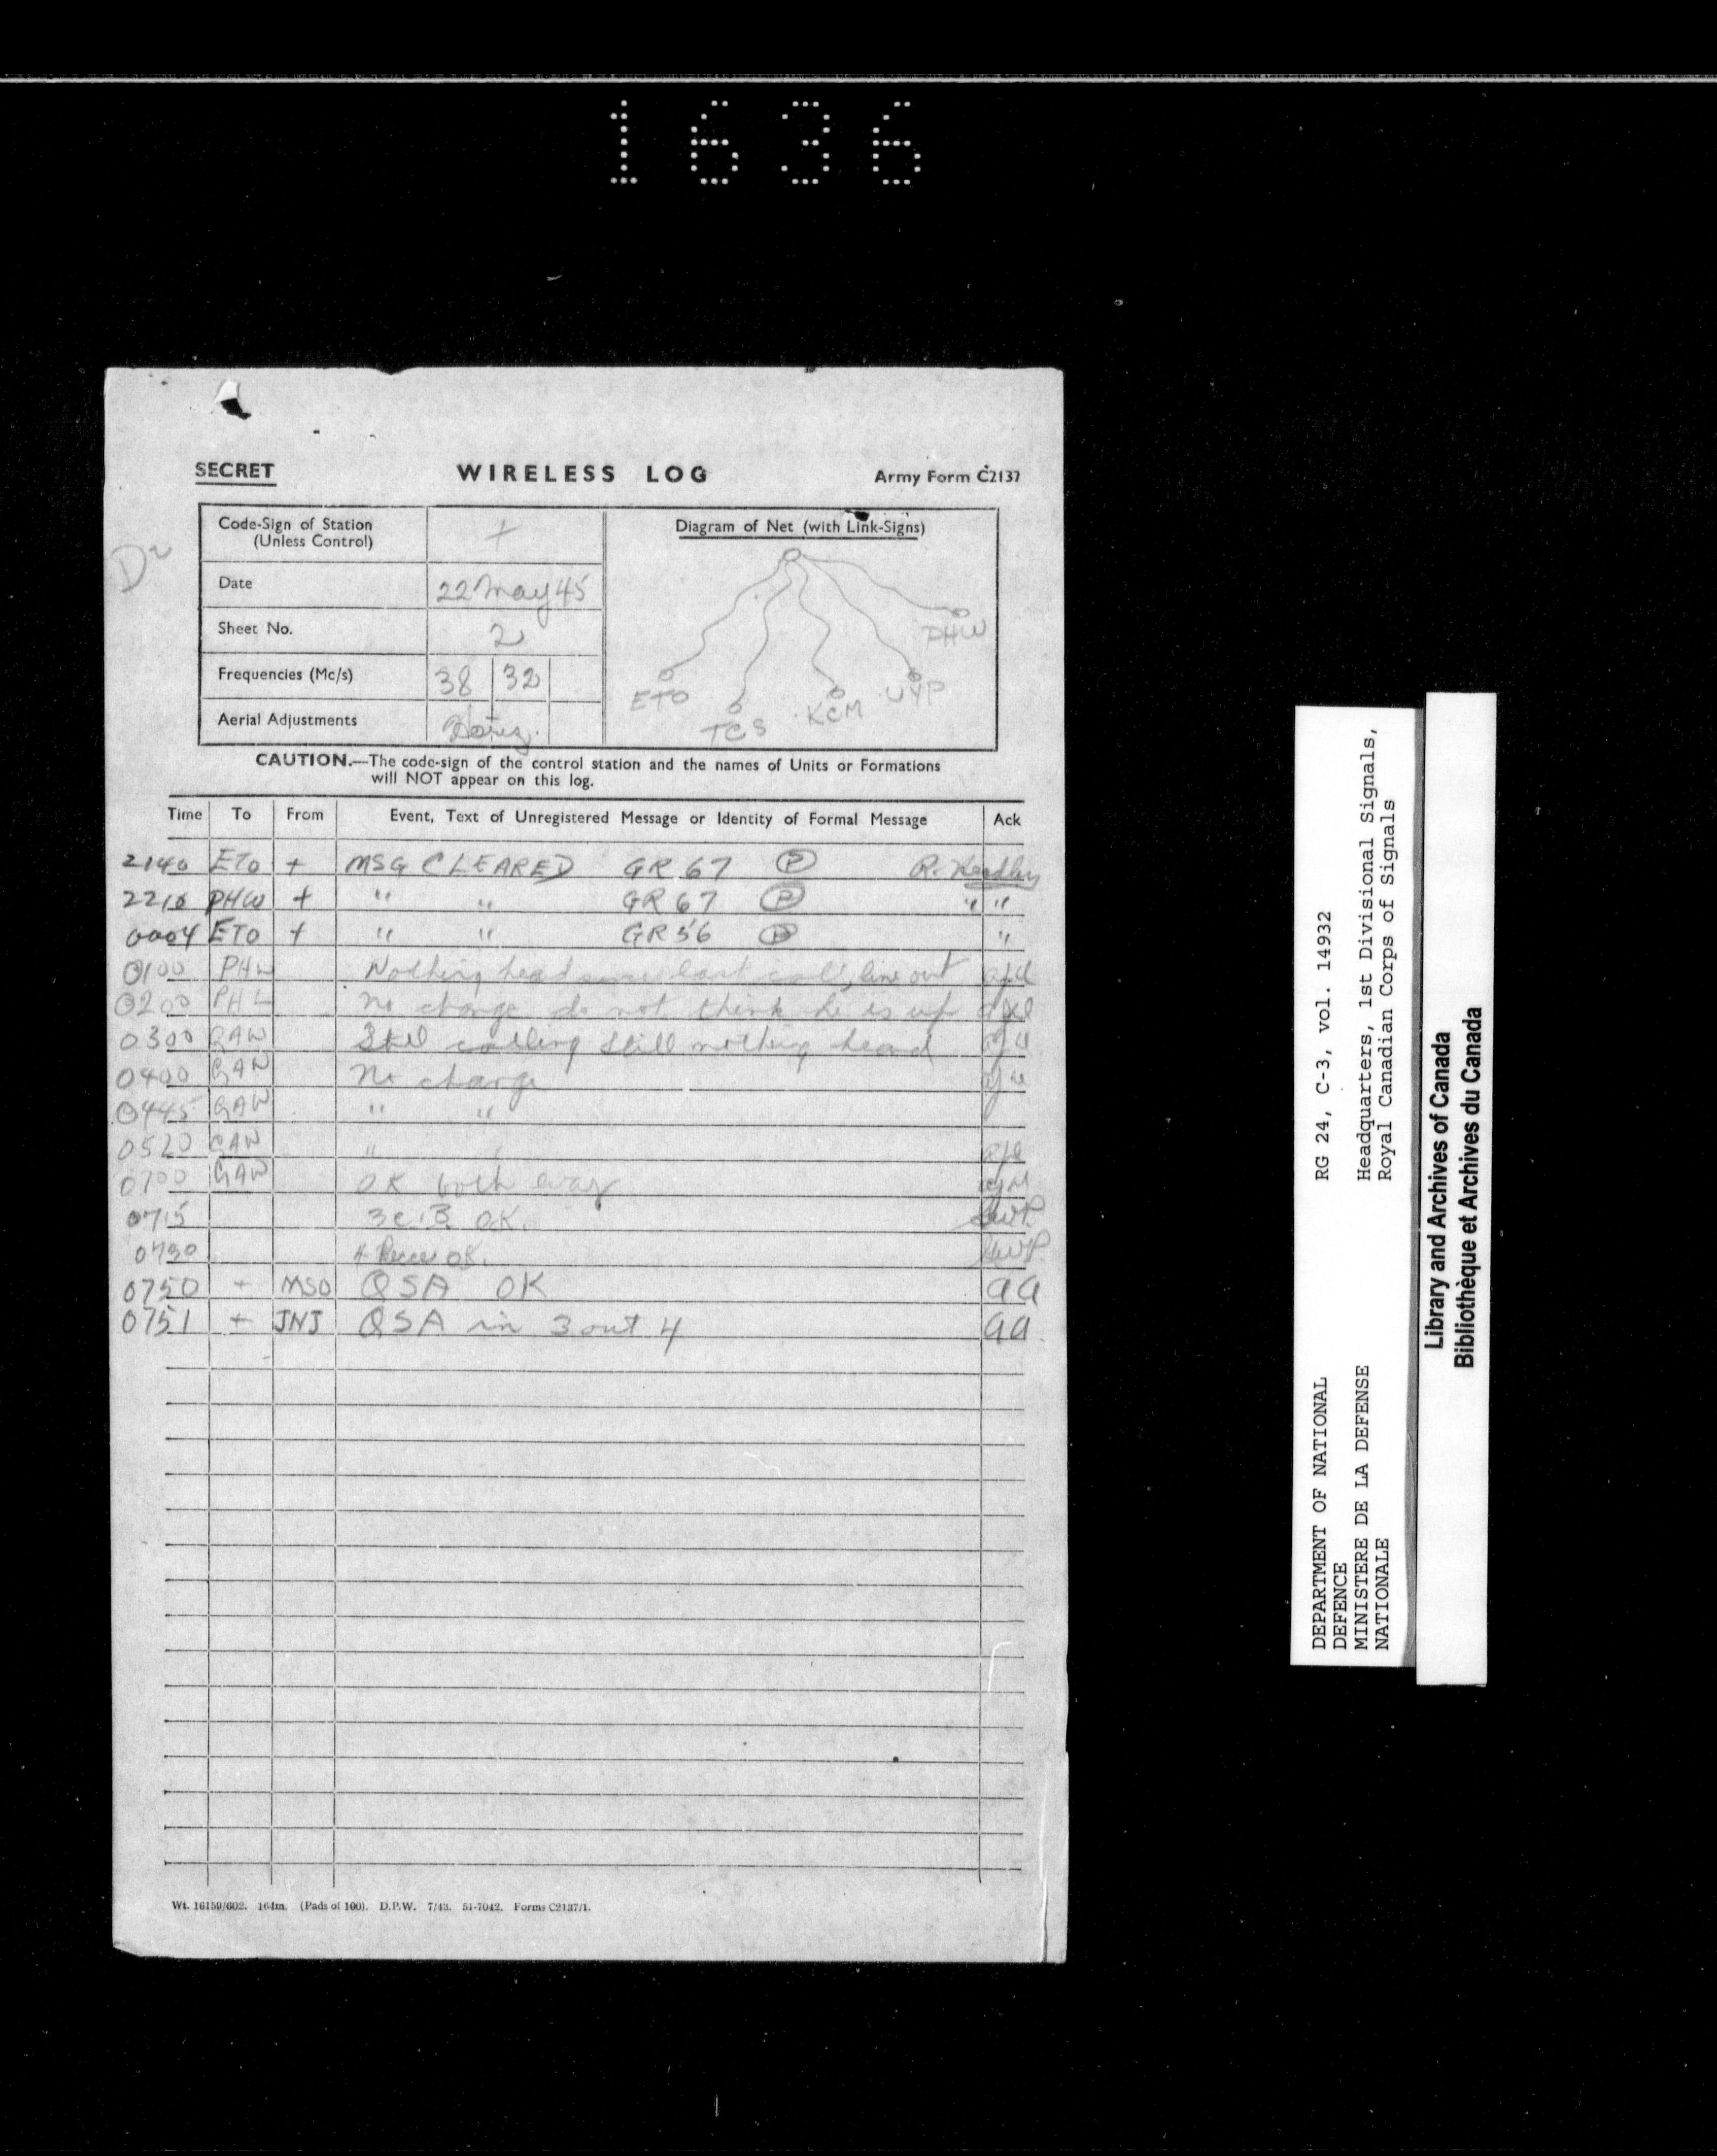 1636
SECRET WIRELESS LOG Army Form C2137
D2
Code-Sign of Station (Unless Control) +
Date 22 May 45
Sheet No. 2
Frequencies (Mc/s) 38 32
Aerial Adjustments
Diagram of Net (with Link-Signs)
PHW
ETO TCS KCM UYP
CAUTION.—The code-sign of the control station and the names of Units or Formations
will NOT appear on this log.
Time To From Event, Text of Unregistered Message or Identity of Formal Message Ack
2140 ETO + MSG CLEARED GR 67 P R.
2210 PHW + " " GR 67 P " "
0004 ETO + " " GR 56 P "
0100 PHW Nothing head last call, line out
0200 No change do not think he is up
0300 GAW Still calling still nothing heard
0400 GAW No change
0445 GAW " "
0520 GAW "
0700 GAW OK both way
0715 3 C.B. OK.
0730 4 Recce OK.
0750 + MSO QSA OK aa
0751 + JNJ QSA in 3 out 4 aa
Wt. 16159/602. 164m. (Pads of 100). D.P.W. 7/43. 51-7042. Forms C2137/1.
DEPARTMENT OF NATIONAL RG 24, C-3, vol. 14932
DEFENCE
MINISTERE DE LA DEFENSE Headquarters, 1st Divisional Signals,
NATIONALE Royal Canadian Corps of Signals
Library and Archives of Canada
Bibliothèque et Archives du Canada